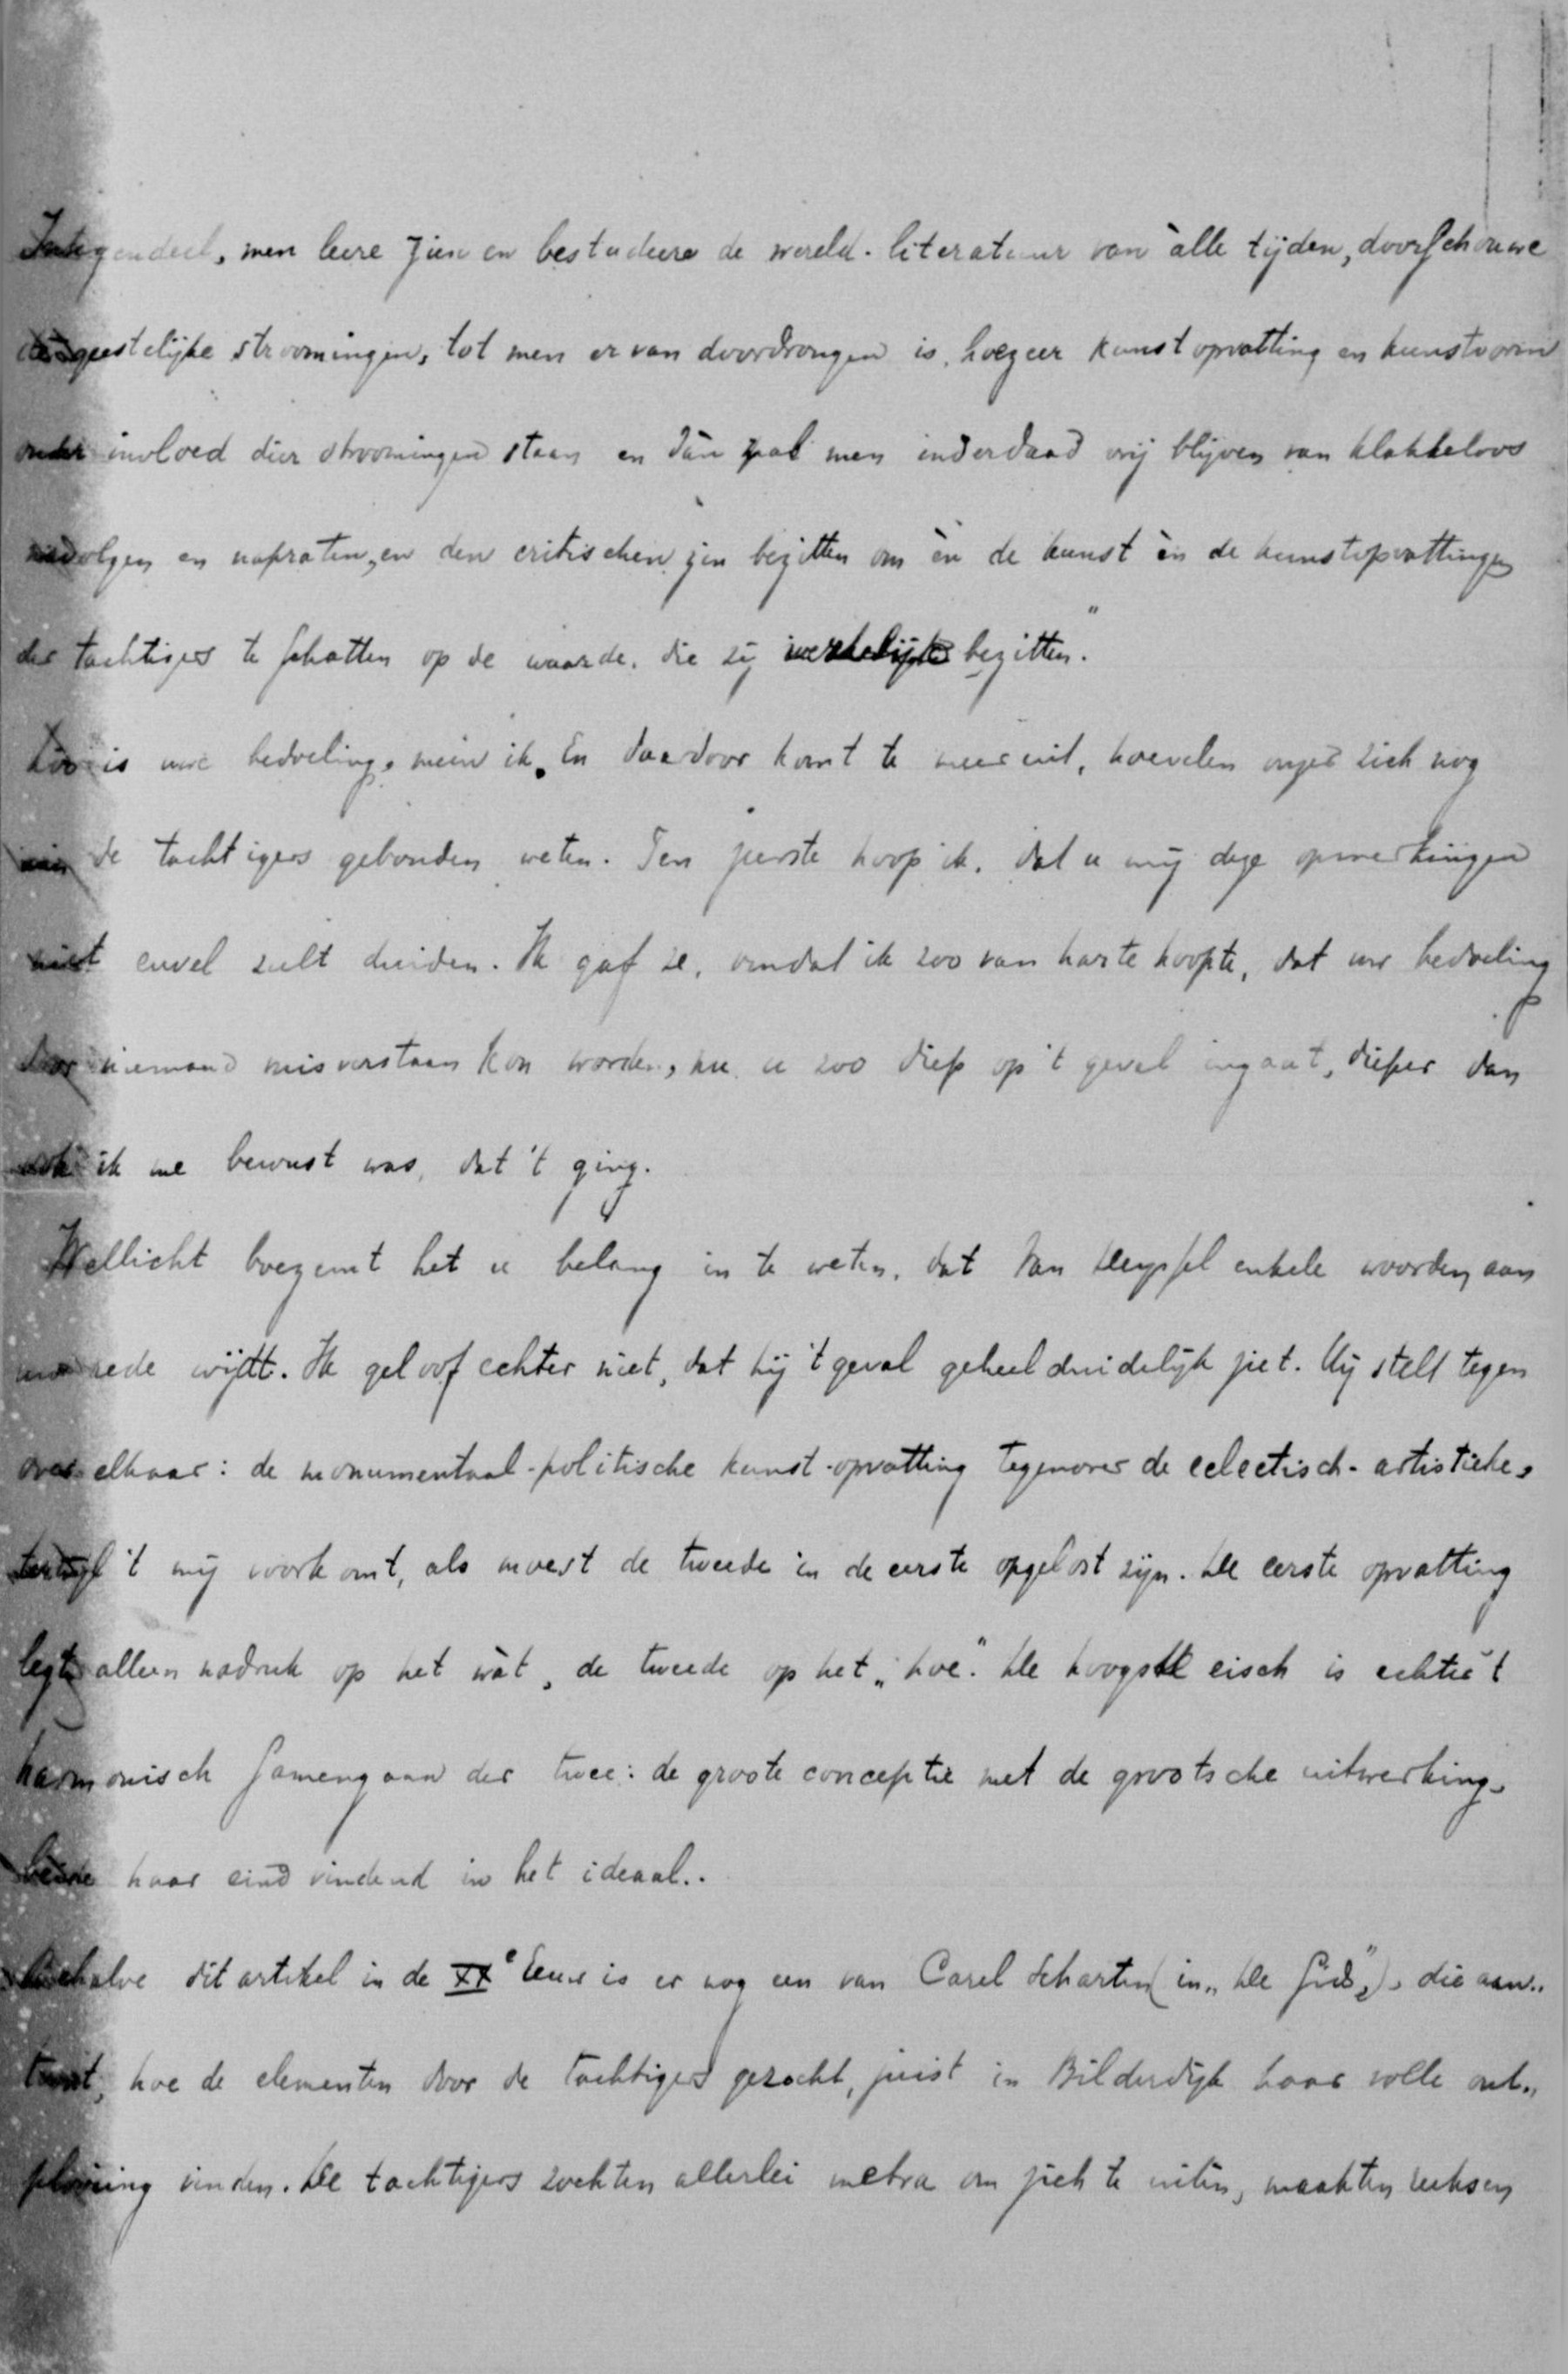 Integendeel, men leere zien en bestudeere de wereld-literatuur van àlle tijden, doorschouwe
de geestelijke stroomingen, tot men er van doordrongen is, hoezeer kunstopvatting en kunstvorm
onder invloed dier stroomingen staan en dàn zal men inderdaad vrij blijven van klakkeloos
navolgen en napraten, en den critischen zin bezitten om èn de kunst èn de kunstopvattingen
der tachtigers te schatten op de waarde, die zij werkelijk bezitten."
Zoo is uwe bedoeling, meen ik. En daardoor komt te meer uit, hoevelen onzer zich nog
aan de tachtigers gebonden weten. Ten zeerste hoop ik, dat u mij deze opmerkingen
niet euvel zult duiden. Ik gaf ze, omdat ik zoo van harte hoopte, dat uw bedoeling
door niemand misverstaan kon worden, nu u zoo diep op 't geval ingaat, dieper dan
ook ik me bewust was, dat 't ging.
Wellicht boezemt het u belang in te weten, dat Van Deyssel enkele woorden aan
uw rede wijdt. Ik geloof echter niet, dat hij 't geval geheel duidelijk ziet. Hij stelt tegen
over elkaar: de monumentaal-politische kunst-opvatting tegenover de eclectisch-artistieke,
terwijl 't mij voorkomt, als moest de tweede in de eerste opgelost zijn. De eerste opvatting
legt alleen nadruk op het wàt, de tweede op het „hoe". De hoogste eisch is echter 't
harmonisch samengaan der twee: de groote conceptie met de grootsche uitwerking,
beide haar eind vindend in het ideaal..
Behalve dit artikel in de XXe Eeuw is er nog een van Carel Scharten (in „De Gids"), die aan..
toont, hoe de elementen door de tachtigers gezocht, juist in Bilderdijk haar volle ont..
plooiing vinden. De tachtigers zochten allerlei metra om zich te uiten, maakten reeksen